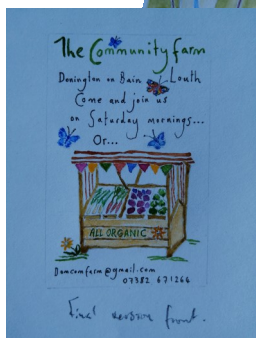 The Community farm
Donington on Bain Louth
Come and join us
on Saturday mornings...
Or...
ALL ORGANIC
Domcomfarm@gmail.com
07352 671264
Final version front.